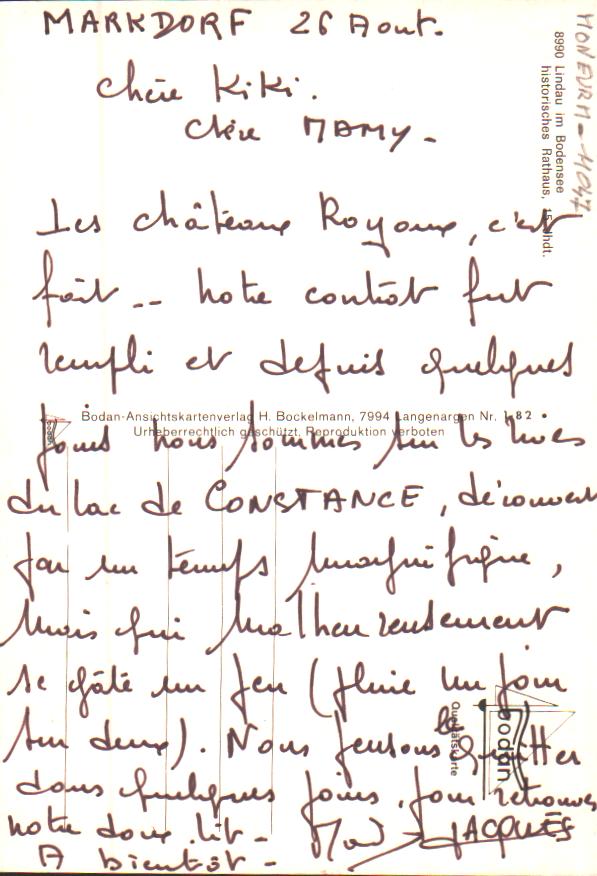 MARKDORF 26 Aout.
chère KiKi.
chère MAMY -
Les châteaux Royaux, c'est
fait -- notre contrat fut
rempli et depuis quelques
jours nous sommes sur les rives
du lac de CONSTANCE, découvert
par un temps magnifique,
mais qui malheureusement
se gâte un peu (pluie un jour
sur deux). Nous pensons les quitter
dans quelques jours, pour retrouver
notre doux lit -
A bientôt - JACQUES
8990 Lindau im Bodensee
historisches Rathaus, 15. Jhdt.
Bodan-Ansichtskartenverlag H. Bockelmann, 7994 Langenargen Nr. 1 82
Urheberrechtlich geschützt, Reproduktion verboten
bodan
Qualitätskarte